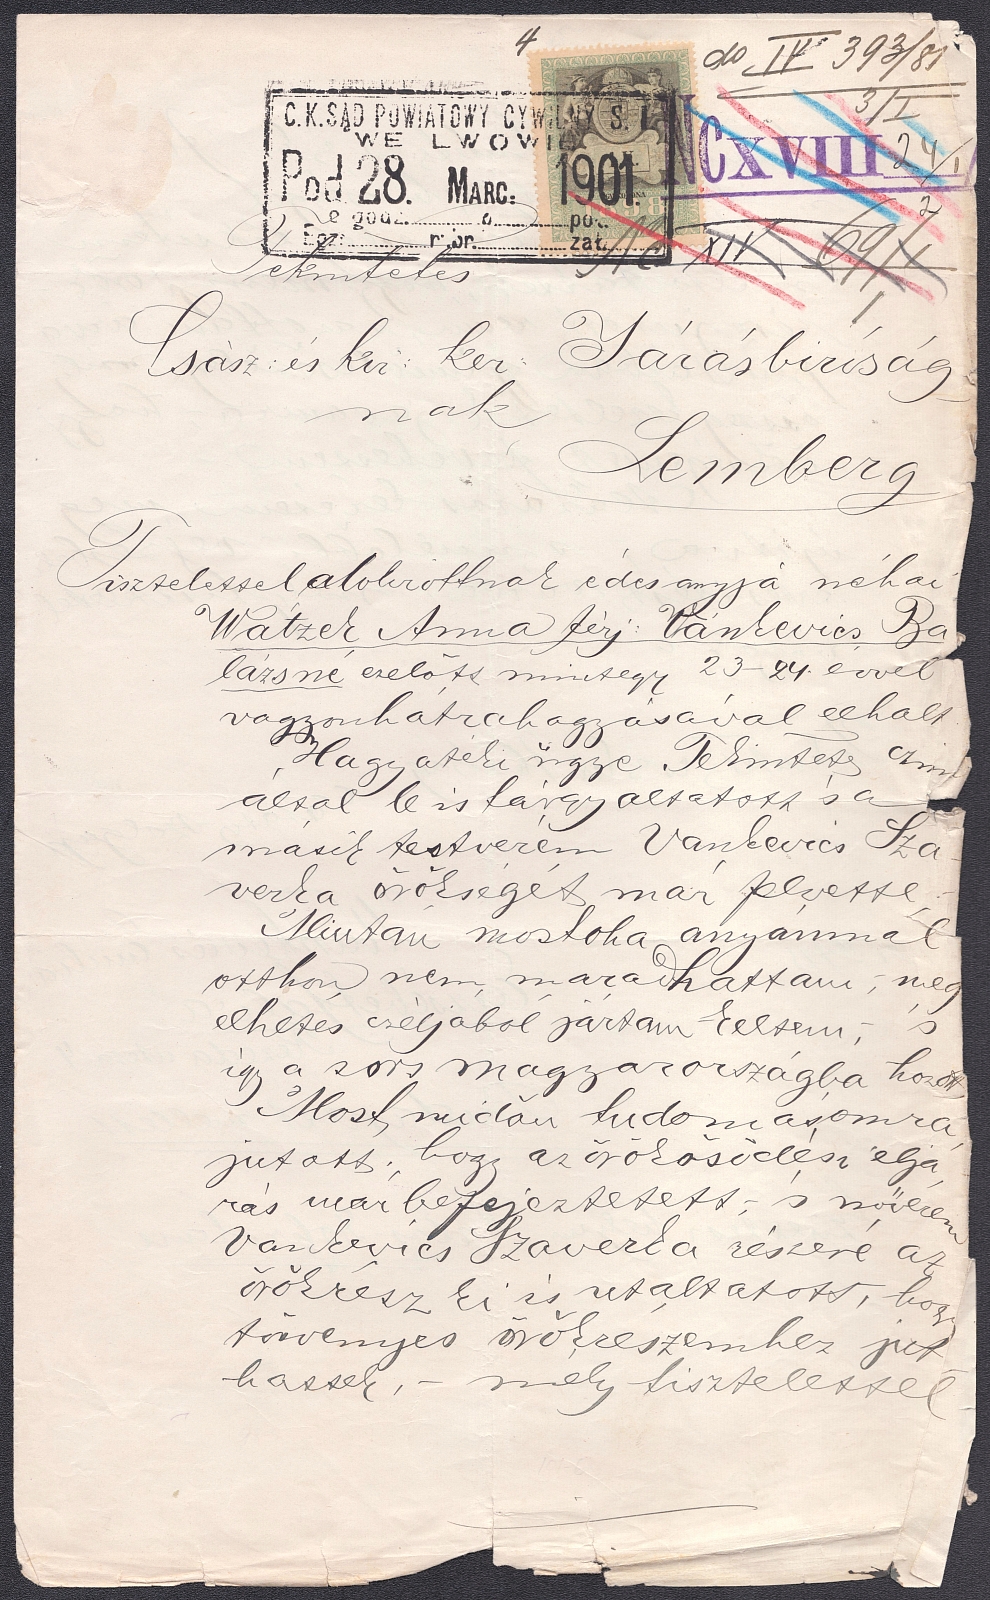 4
do IV 393/81
3/I
C.K.SĄD POWIATOWY CYWILNY S. I.
WE LWOWIE
Pod 28. MARC. 1901.
o godz. po.
Egz: r.pr. zał.
NCXVIII 24/1
2
XIV 69/1
1
Tekintetes
Csász: és kir: ker: Járásbiróság
nak
Lemberg
Tisztelettel alólirottnak édes anyjá néhai
Wátzek Anna férj: Vánkevics Ba
lázsné ezelőtt mintegy 23-24 évvel
vagyonhátrahagyásával elhalt
Hagyatéki ügye Tekintetes czim
által le is tárgyaltatott s a
másik testvérem Vankevics Sza-
verka örökségét már felvette.-
Miután mostoha anyámnál
otthon nem maradhattam, meg
elhetés czéljából jártam keltem, s
igy a sors magyarországba hozott
Most, midőn tudomásomra
jutott, hogy az örökösödési eljá
rás már befejeztetett, s nővérem
Vankevics Szaverka részére az
örökrész ki is utaltatott, hogy
törvenyes örökreszemhez jut
hassek, - mély tisztelettel